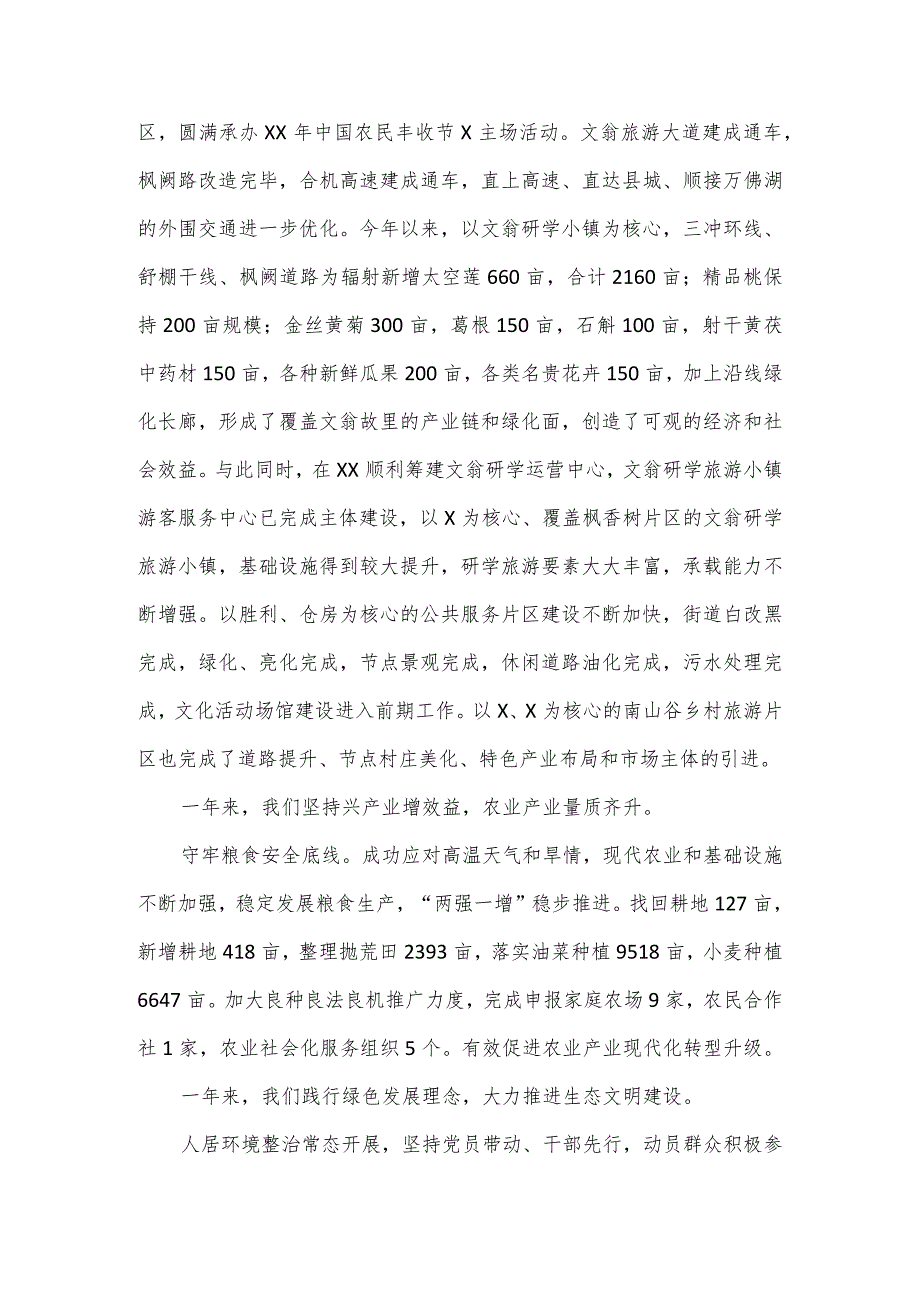 区，圆满承办 XX 年中国农民丰收节 X 主场活动。文翁旅游大道建成通车，
枫阙路改造完毕，合机高速建成通车，直上高速、直达县城、顺接万佛湖
的外围交通进一步优化。今年以来，以文翁研学小镇为核心，三冲环线、
舒棚干线、枫阙道路为辐射新增太空莲 660 亩，合计 2160 亩；精品桃保
持 200 亩规模；金丝黄菊 300 亩，葛根 150 亩，石斛 100 亩，射干黄茯
中药材 150 亩，各种新鲜瓜果 200 亩，各类名贵花卉 150 亩，加上沿线绿
化长廊，形成了覆盖文翁故里的产业链和绿化面，创造了可观的经济和社
会效益。与此同时，在 XX 顺利筹建文翁研学运营中心，文翁研学旅游小镇
游客服务中心已完成主体建设，以 X 为核心、覆盖枫香树片区的文翁研学
旅游小镇，基础设施得到较大提升，研学旅游要素大大丰富，承载能力不
断增强。以胜利、仓房为核心的公共服务片区建设不断加快，街道白改黑
完成，绿化、亮化完成，节点景观完成，休闲道路油化完成，污水处理完
成，文化活动场馆建设进入前期工作。以 X、X 为核心的南山谷乡村旅游片
区也完成了道路提升、节点村庄美化、特色产业布局和市场主体的引进。
一年来，我们坚持兴产业增效益，农业产业量质齐升。
守牢粮食安全底线。成功应对高温天气和旱情，现代农业和基础设施
不断加强，稳定发展粮食生产，“两强一增”稳步推进。找回耕地 127 亩，
新增耕地 418 亩，整理抛荒田 2393 亩，落实油菜种植 9518 亩，小麦种植
6647 亩。加大良种良法良机推广力度，完成申报家庭农场 9 家，农民合作
社 1 家，农业社会化服务组织 5 个。有效促进农业产业现代化转型升级。
一年来，我们践行绿色发展理念，大力推进生态文明建设。
人居环境整治常态开展，坚持党员带动、干部先行，动员群众积极参